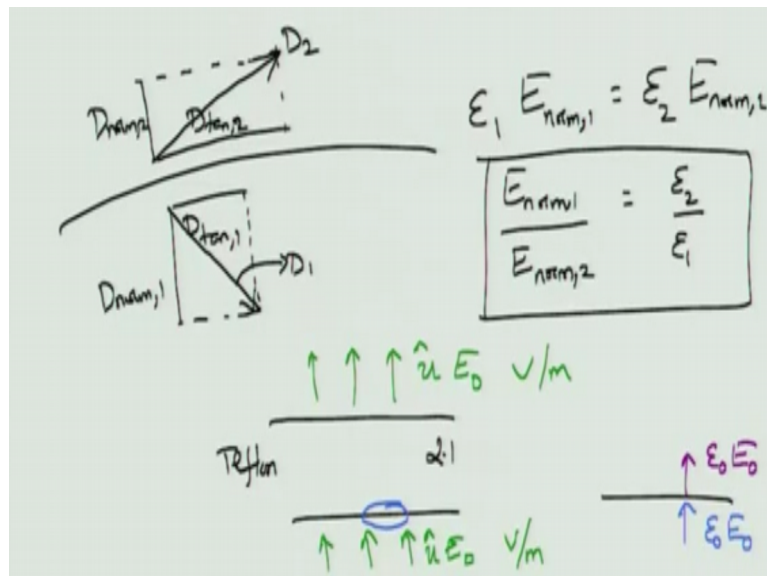 D₂
Dnorm,2
Dtan,2
Dtan,1
D₁
Dnorm,1
ε₁ Enorm,1 = ε₂ Enorm,2
Enorm1 / Enorm,2 = ε₂ / ε₁
û E₀ V/m
Teflon 2.1
û E₀ V/m
ε₀E₀
ε₀E₀